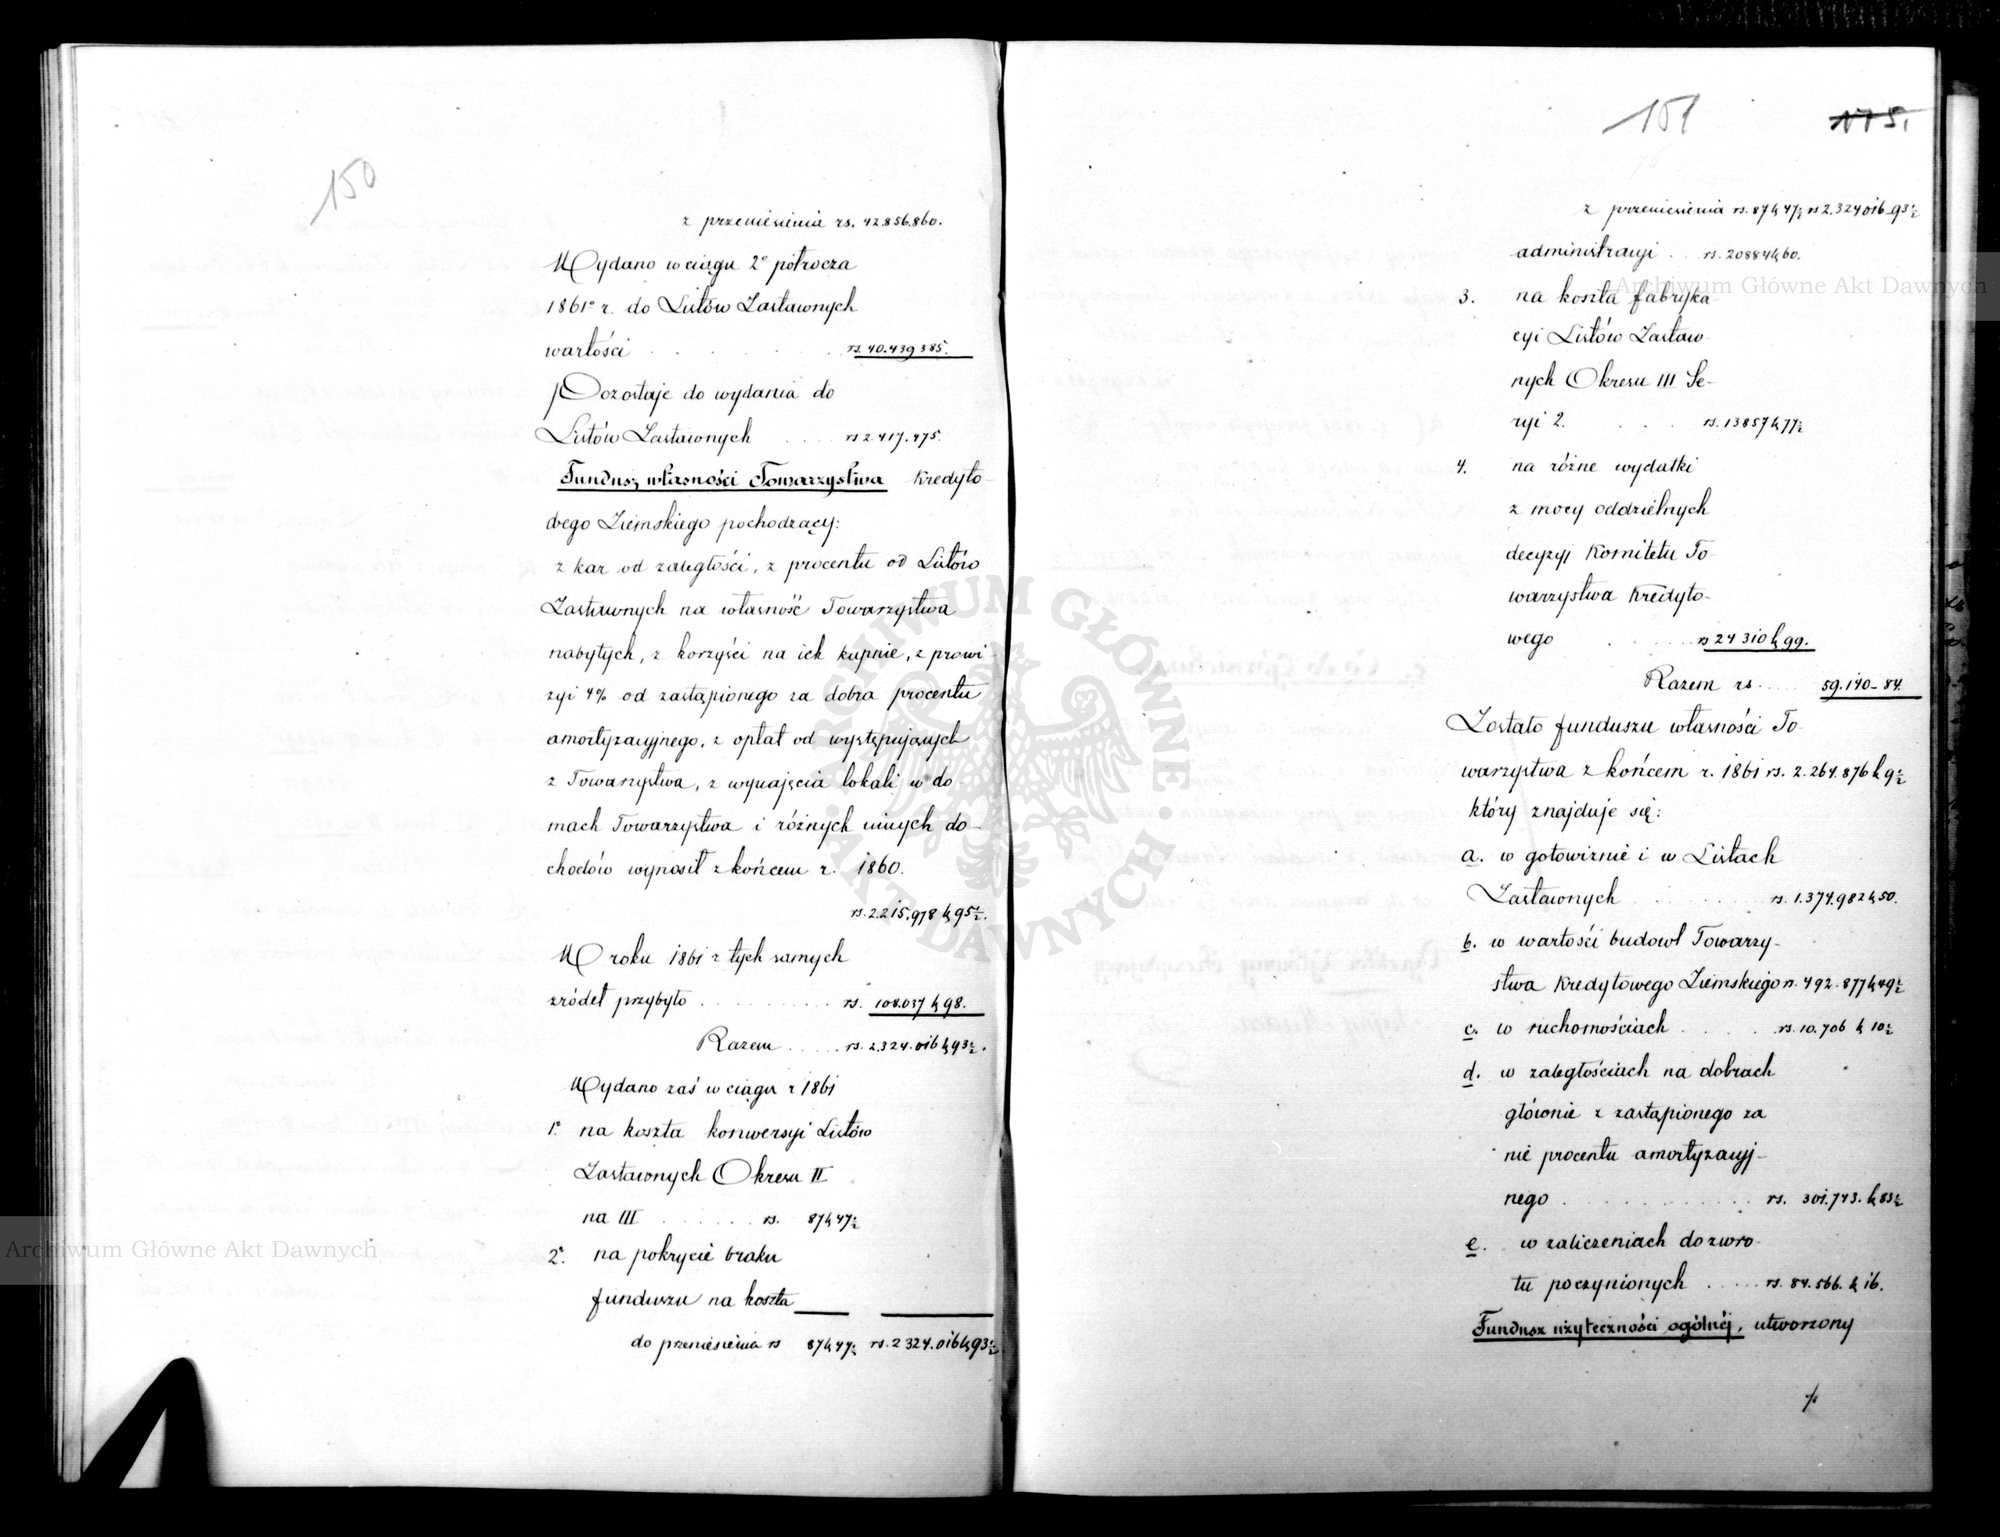 150
z przeniesienia rs. 42.856.860.
Wydano w ciągu 2º półrocza
1861º r. do Listów Zastawnych
wartości . . . . . rs. 40.439.385.
Pozostaje do wydania do
Listów Zastawnych . . . . rs 2.417.475.
Fundusz własności Towarzystwa Kredyto-
wego Ziemskiego pochodzący:
z kar od zaległości, z procentu od Listów
Zastawnych na własność Towarzystwa
nabytych, z korzyści na ich kupnie, z prowi-
zyi 4% od zastąpionego za dobra procentu
amortyzacyjnego, z opłat od występujących
z Towarzystwa, z wynajęcia lokali w do-
mach Towarzystwa i różnych innych do-
chodów wynosił z końcem r. 1860.
rs. 2.215.978 k 95½.
W roku 1861 z tych samych
źródeł przybyło . . . . . . . . . rs. 108.037 k 98.
Razem . . . . . rs. 2.324.016 k 93½.
Wydano zaś w ciągu r 1861
1º na koszta konwersyi Listów
Zastawnych Okresu II
na III . . . . . . rs. 87 k 47½
2º. na pokrycie braku
funduszu na koszta
do przeniesienia rs 87 k 47½ rs. 2 324.016 k 93½
151 175.
z przeniesienia rs. 87 k 47½ rs 2.324 016-93½
administracyi . . rs. 20884 k 60.
3. na koszta fabryka-
cyi Listów Zastaw-
nych Okresu III Se-
ryi 2. . . . rs. 13857 k 77½
4. na różne wydatki
z mocy oddzielnych
decyzyj Komitetu To-
warzystwa Kredyto-
wego . . . . . . rs 24 310 k 99.
Razem rs . . . . 59.140-84.
Zostało funduszu własności To-
warzystwa z końcem r. 1861 rs. 2.264.876 k 9½
który znajduje się:
a. w gotowiźnie i w Listach
Zastawnych . . . . . . . . . rs. 1.374.982 k 50.
b. w wartości budowl Towarzy-
stwa Kredytowego Ziemskiego rs. 492.877 k 49½
c. w ruchomościach . . . . . rs. 10.706 k 10½
d. w zaległościach na dobrach
głównie z zastąpionego za
nie procentu amortyzacyj-
nego . . . . . . . . . . . rs. 301.743. k 83½
e. w zaliczeniach do zwro-
tu poczynionych . . . . . rs. 84.566. k 16.
Fundusz użyteczności ogólnéj, utworzony